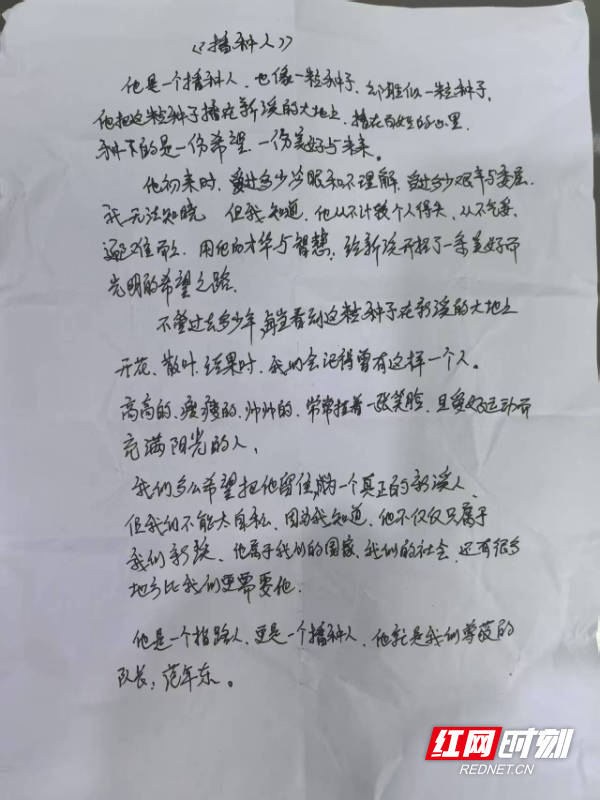 《播种人》
他是一个播种人，也像一粒种子，却胜似一粒种子，
他把这粒种子播在新溪的大地上，播在百姓的心里，
种下的是一份希望，一份美好与未来。
他初来时，受过多少冷眼和不理解，受过多少艰辛与委屈，
我无法知晓，但我知道，他从不计较个人得失，从不气馁，
迎难而上，用他的才华与智慧，给新溪开拓了一条美好而
光明的希望之路。
不管过去多少年，每当看到这粒种子在新溪的大地上
开花、散叶、结果时，我们会记得曾有这样一个人。
高高的、瘦瘦的、帅帅的，常常挂着一张笑脸，且爱好运动而
充满阳光的人，
我们多么希望把他留住，成为一个真正的新溪人，
但我们不能太自私，因为我知道，他不仅仅只属于
我们新溪，他属于我们的国家，我们的社会，还有很多
地方比我们更需要他。
他是一个指路人，更是一个播种人，他就是我们尊敬的
队长：范年东。
红网时刻
REDNET.CN